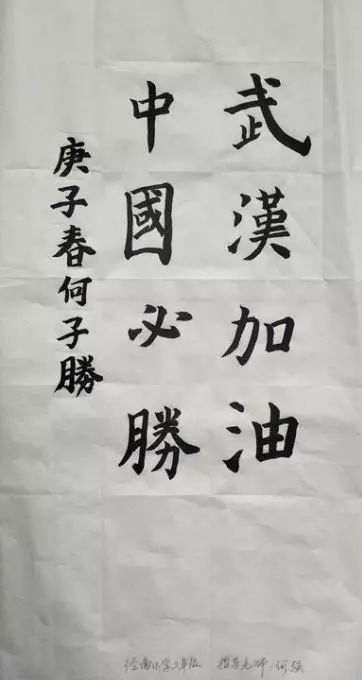 武漢加油
中國必勝
庚子春何子勝
径南小学三年级 指导老师:何强